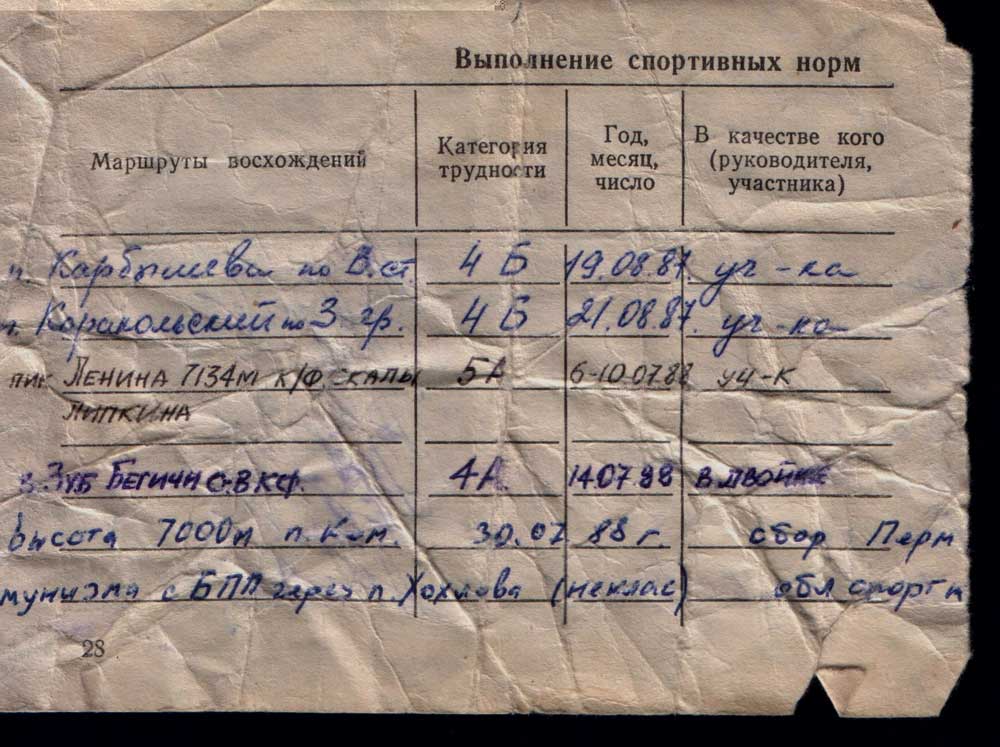 Выполнение спортивных норм
Маршруты восхождений
Категория трудности
Год, месяц, число
В качестве кого (руководителя, участника)
п. Карбышева по В.ст 4 Б 19.08.87 уч-ка
п. Каракольский по З. гр. 4 Б 21.08.87. уч-ка
пик ЛЕНИНА 7134м К/Ф. СКАЛЫ 5А 6-10.07.88 УЧ-К
ЛИПКИНА
В. Зуб БЕГИЧИ С-В КФ. 4А. 14.07.88 В ДВОЙКЕ
Высота 7000м п. Ком. 30.07 88 г. сбор Перм
мунизма с БПП через п. Хохлова (неклас) обл спортк
28